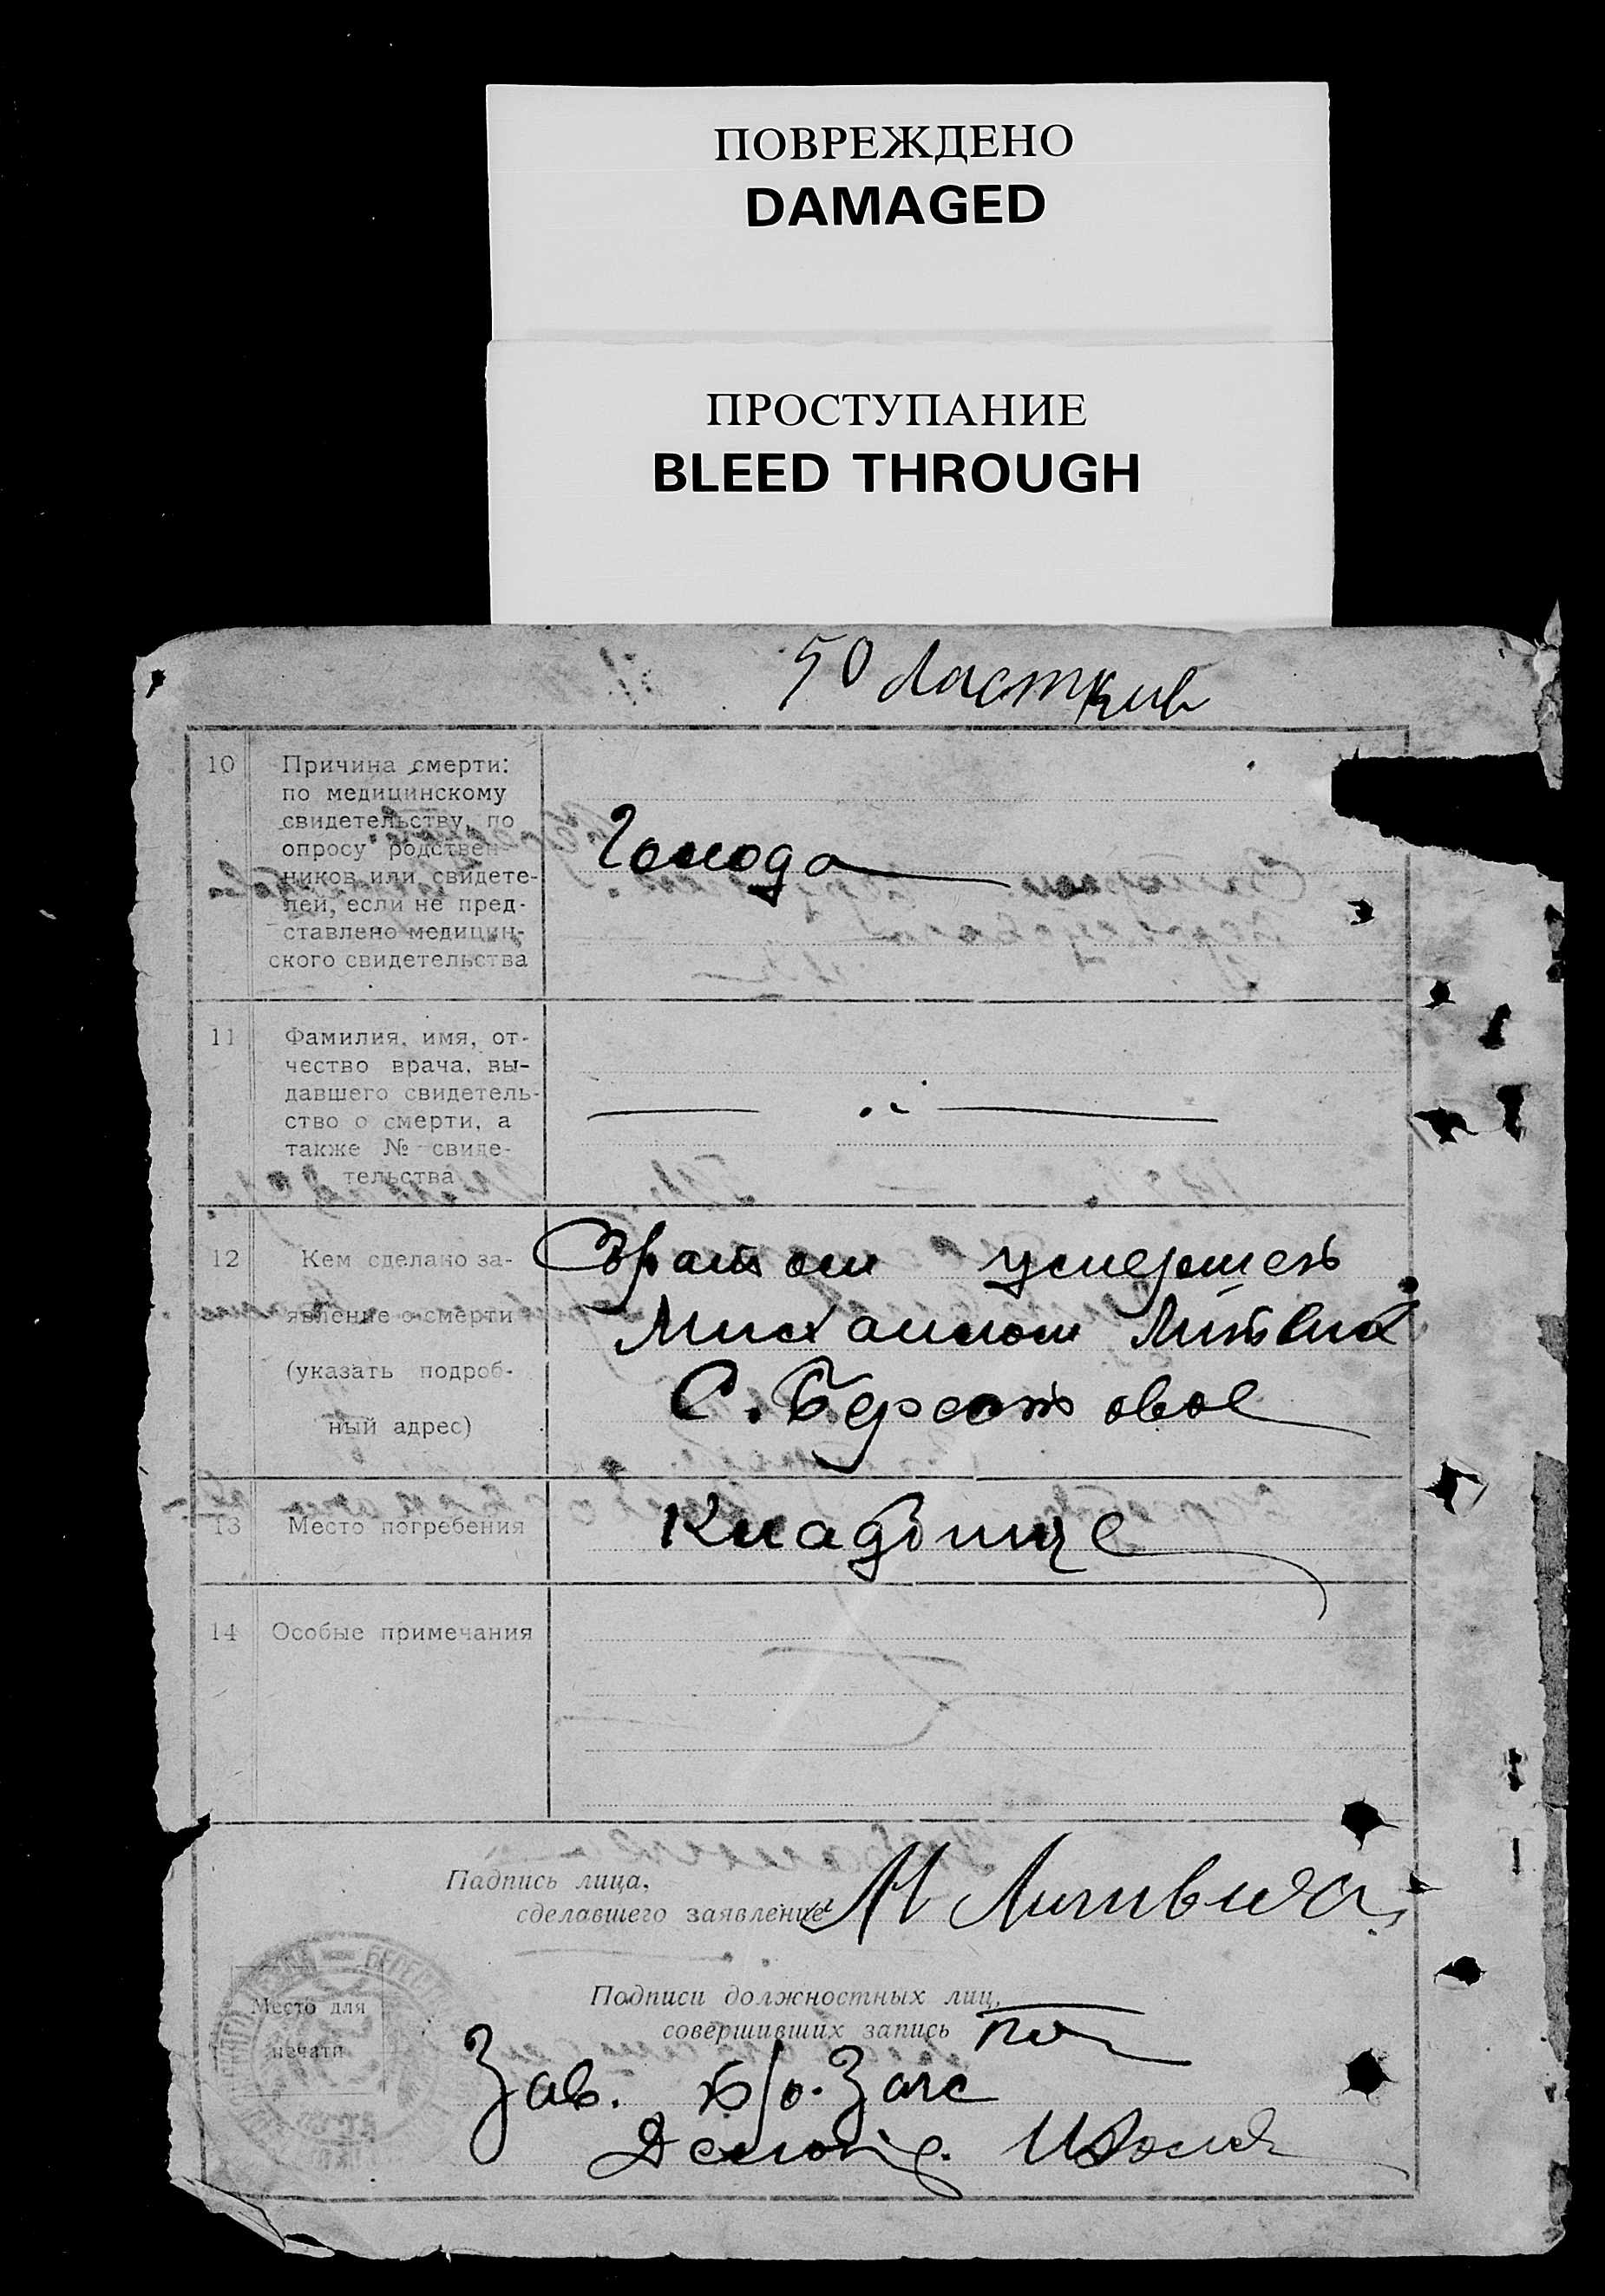 ПОВРЕЖДЕНО
DAMAGED
ПРОСТУПАНИЕ
BLEED THROUGH
50
10 Причина смерти:
по медицинскому
свидетельству, по
опросу родствен-
ников или свидете-
лей, если не пред-
ставлено медицин-
ского свидетельства
Голода
11 Фамилия, имя, от-
чество врача, вы-
давшего свидетель-
ство о смерти, а
также № свиде-
тельства
12 Кем сделано за-
явление о смерти
(указать подроб-
ный адрес)
Братом умершего
Михаилом Литвин
С. Берестовое
13 Место погребения
Кладбище
14 Особые примечания
Падпись лица,
сделавшего заявление М Литвина
Место для
печати
Подписи должностных лиц,
совершивших запись
Зав. б/о. Загс